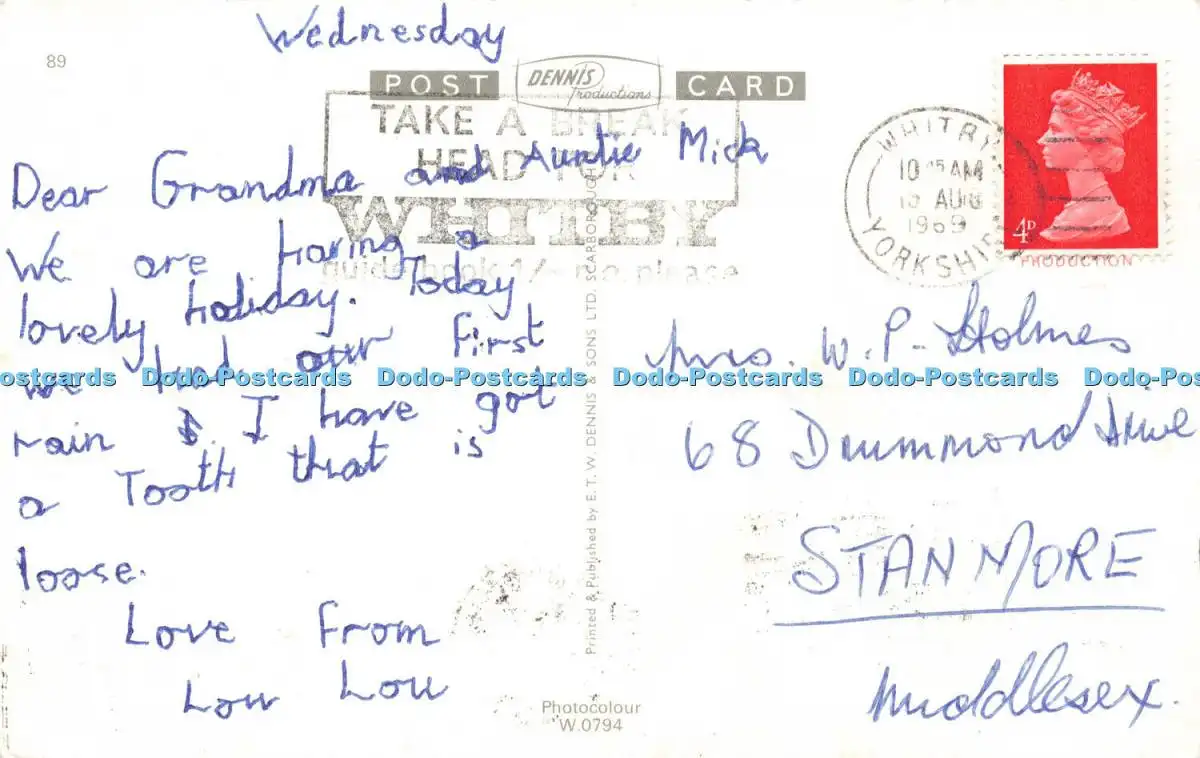 Wednesday
89
POST CARD
DENNIS
Productions
TAKE A BREAK
HEAD FOR
WHITBY
guide book 1/- p.o. please
WHITBY
YORKSHIRE
10 15 AM
13 AUG
1969
4P
PRODUCTION
Dear Grandma and Auntie Mick
We are having a
lovely holiday. Today
we had our first
rain I have got
a Tooth that is
loose.
Love From
Lou Lou
Mrs. W. P. Holmes
68 Drummond Drive
STANMORE
Middlesex.
Printed & Published by E.T.W. DENNIS & SONS LTD. SCARBOROUGH
Photocolour
W.0794
Dodo-Postcards Dodo-Postcards Dodo-Postcards Dodo-Postcards Dodo-Postcards Dodo-Postcards